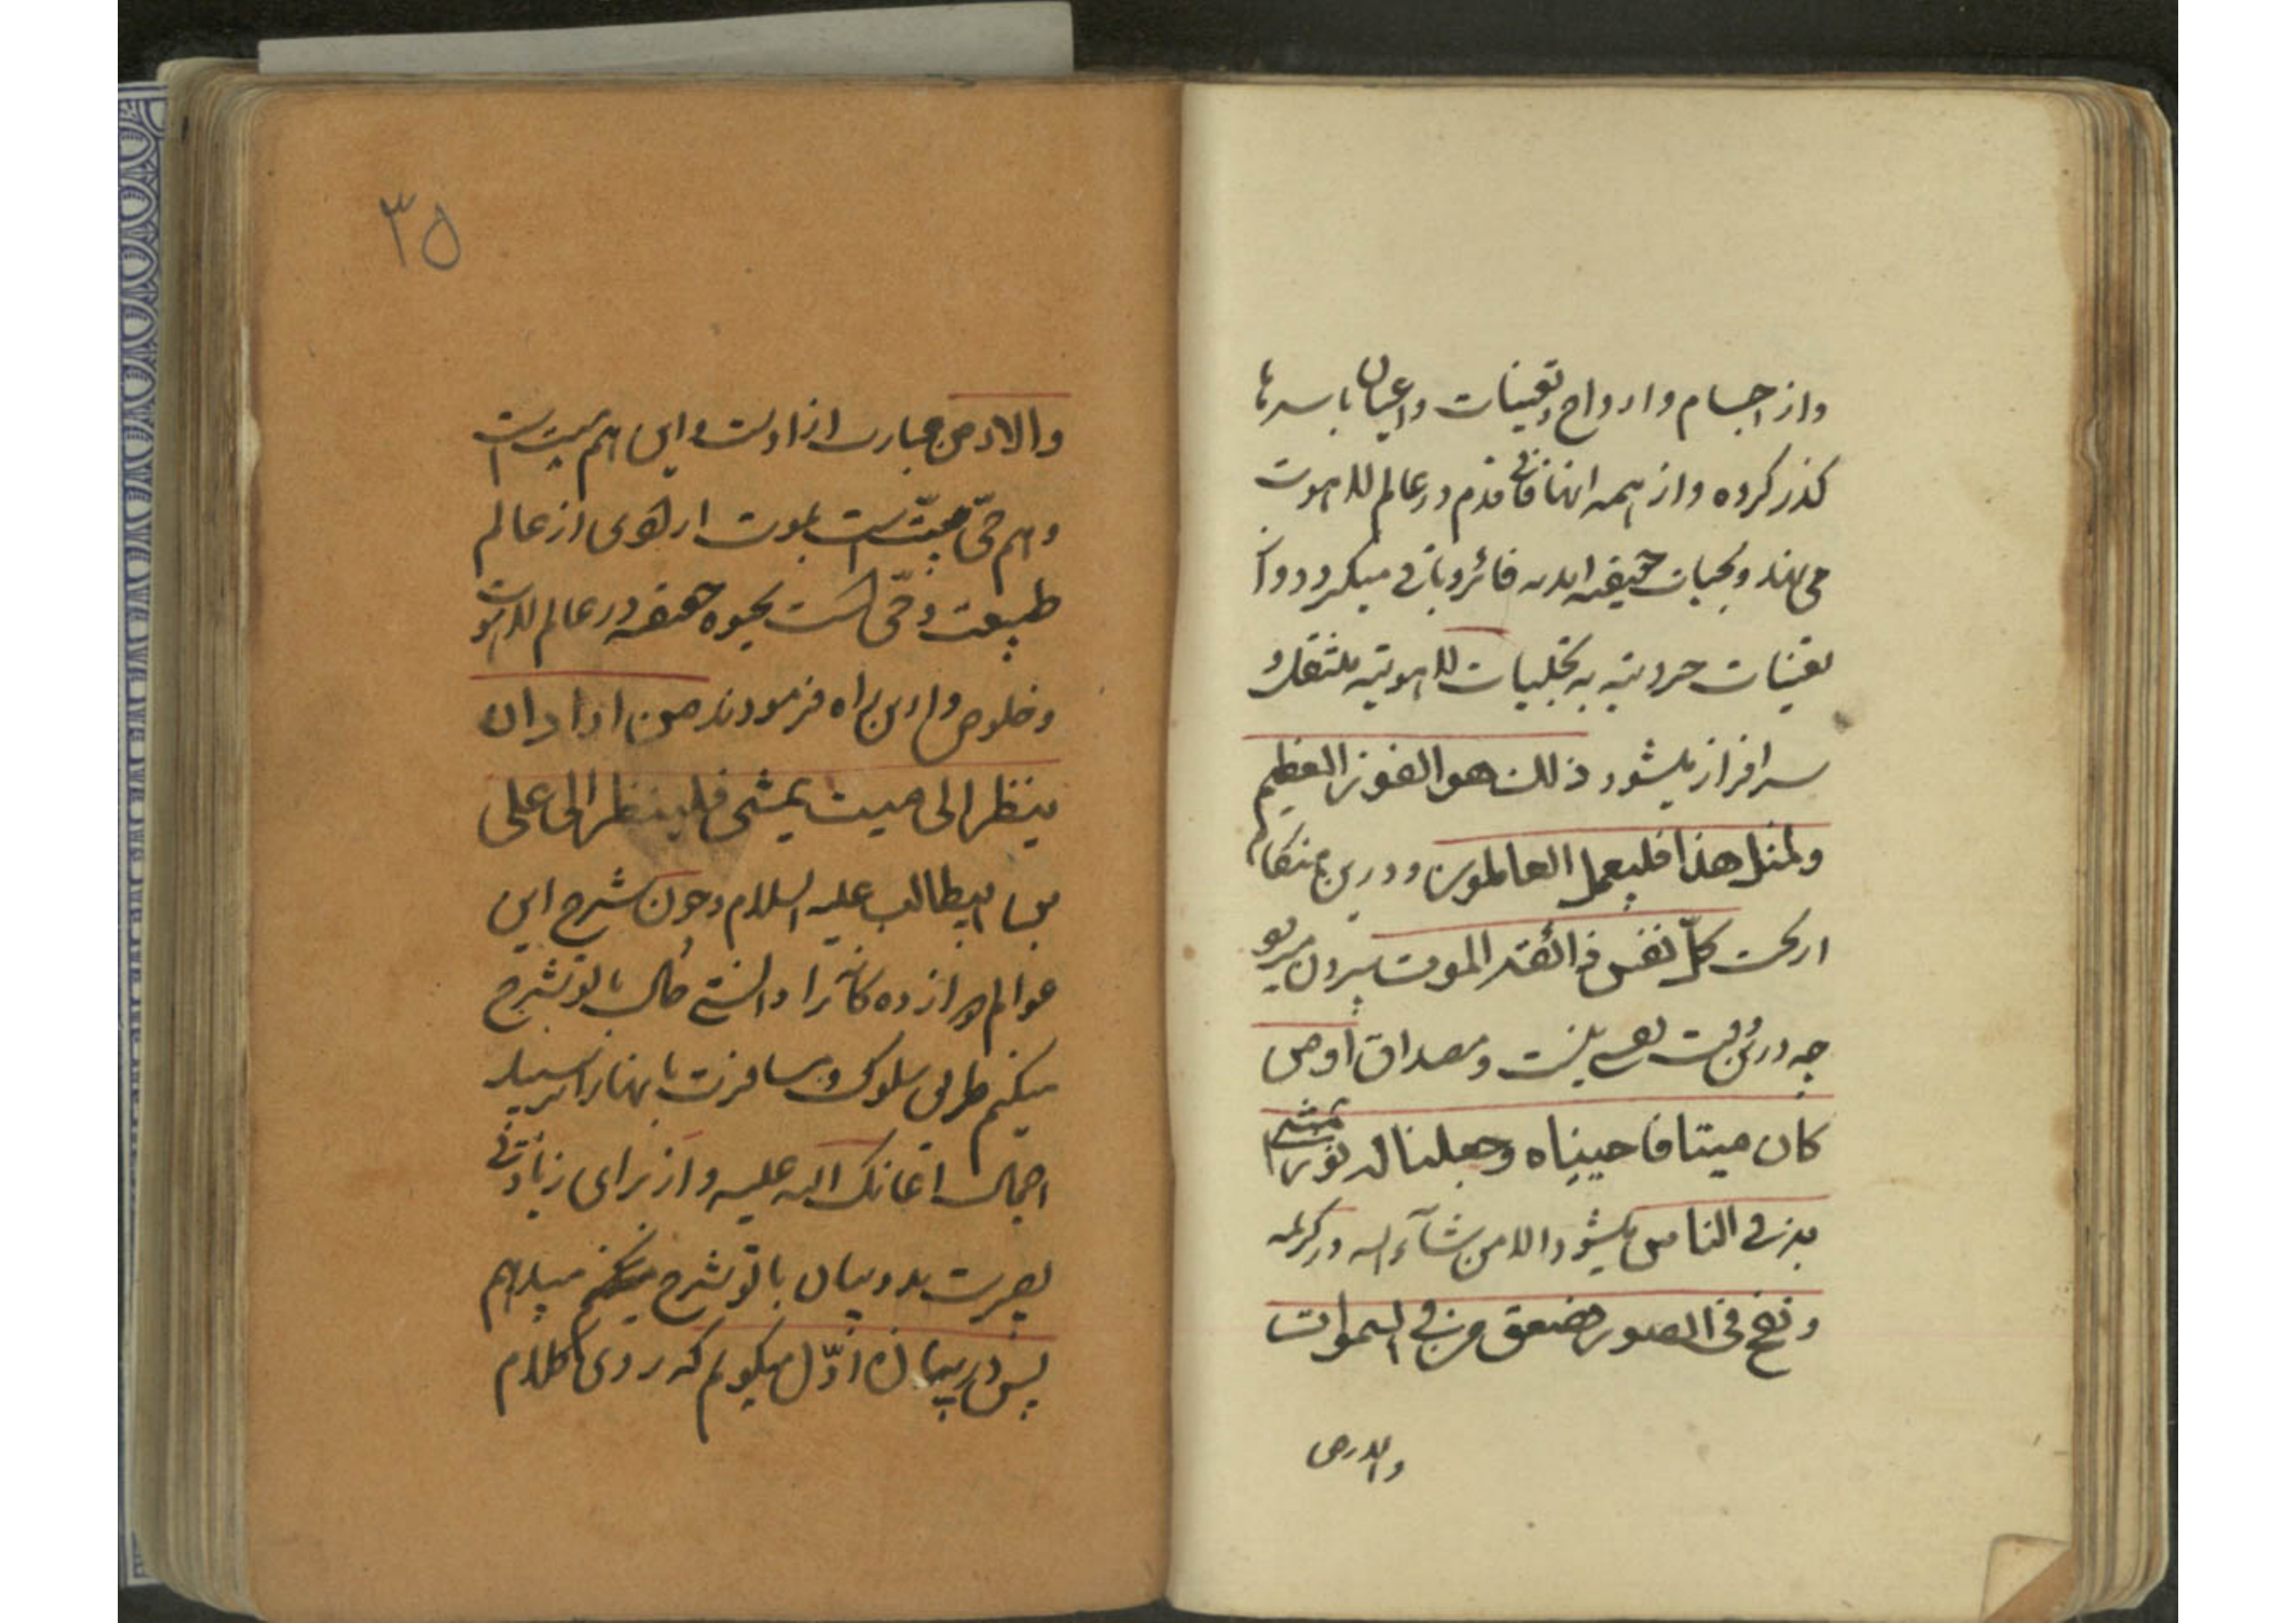 واز اجسام وارواح وتعینات واعیان باسرها
کذر کرده واز همه اینها فانی قدم در عالم لاهوت
می نهند وبحیات حقیقیه ابدیه فائز وباقی میکردد واز
تعینات حدودیه به تجلیات لاهوتیه ملتفت و
سرافراز میشود ذلك هو الفوز العظیم
ولمثل هذا فلیعمل العاملون ودرین هنکام
از تحت کلّ نفس ذائقة الموت بیرون میرود
چه درین وقت نفس نیست ومصداق اومن
کان میتا فاحییناه وجعلنا له نورا یمشی
به فی الناس میشود والا من شآء الله در کریمه
ونفخ فی الصور فصعق من فی السموات
والارض
٣٥
والارض عبارت از اوست واین هم میت است
وهم حیّ میّت است بموت ارادی از عالم
طبیعت وحیّ است بحیوة حقیقیه در عالم لاهوت
وخلوص وازین راه فرمودند من اراد ان
ینظر الی میت یمشی فلینظر الی علی
بن ابیطالب علیه السلام وچون شرح این
عوالم دوازده کانه را دانستی حال با تو شرح
میکنم طریق سلوک ومسافرت باینها را بر سبیل
اجمال اعانک الله علیه واز برای زیادتی
بصیرت بدو بیان با تو شرح میدهم
پس در بیان اوّل میکویم که روی کلام